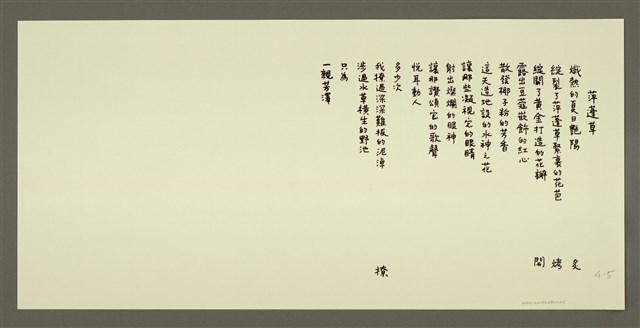 萍蓬草
熾熱的夏日艷陽
綻裂了萍蓬草緊裹的花苞
綻開了黃金打造的花瓣
露出豆蔻嵌飾的紅心
散發椰子粉的芳香
這天造地設的水神之花
讓那些凝視它的眼睛
射出燦爛的眼神
讓那讚頌它的歌聲
悅耳動人
多少次
我撩過深深難拔的泥淖
涉過水草橫生的野池
只為
一親芳澤
炙
烤
開
撩
4-5